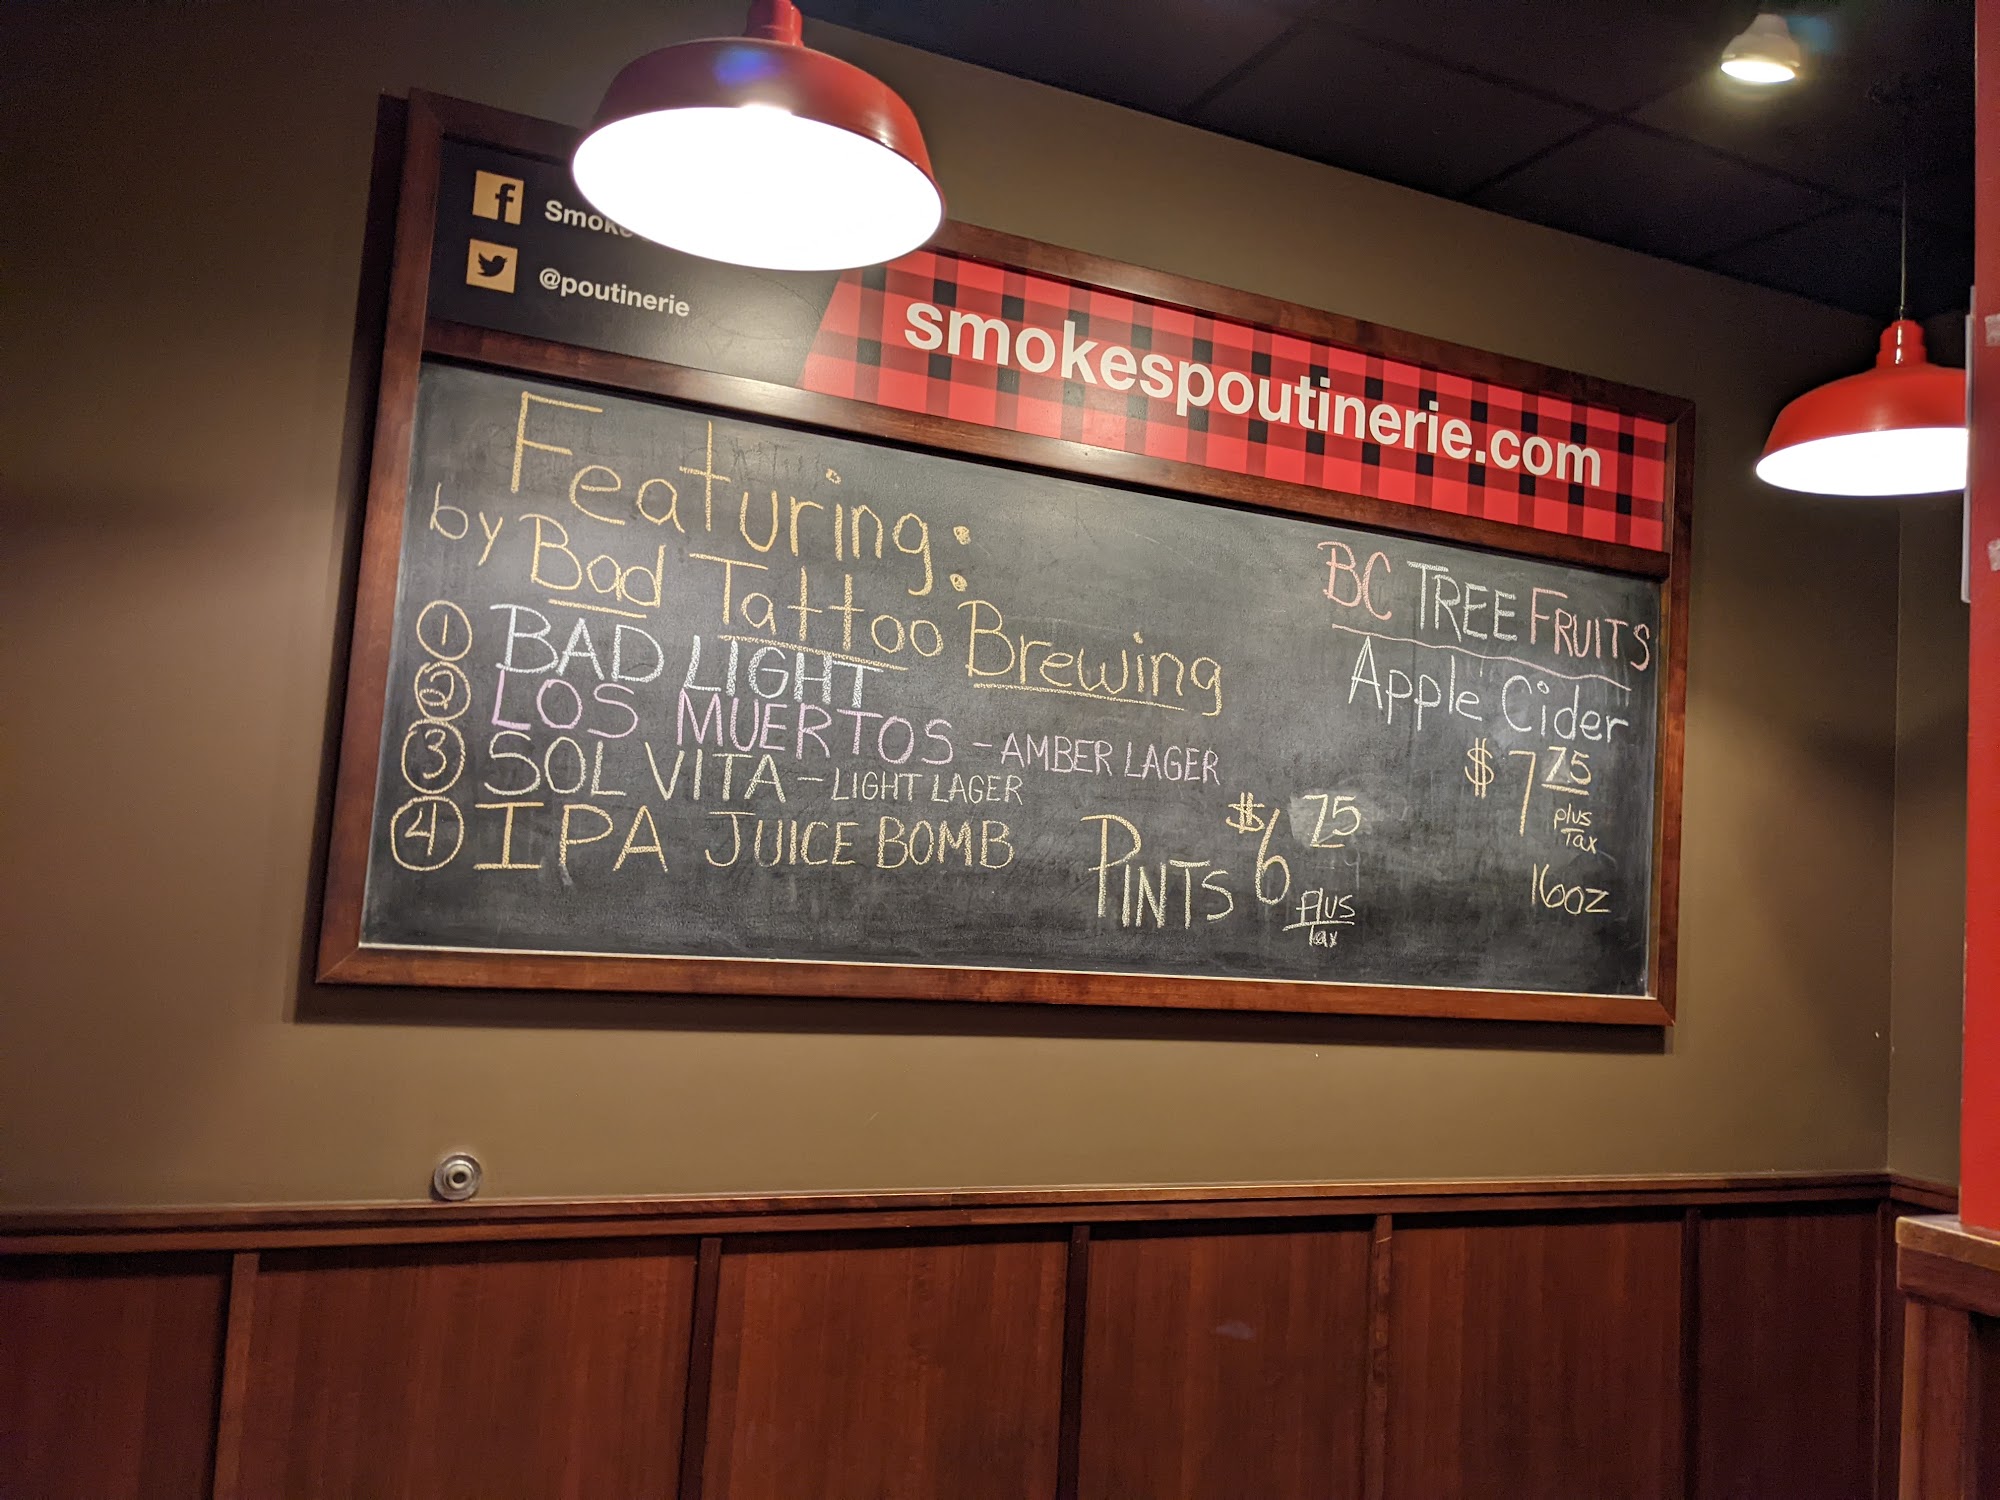 f
@poutinerie
smokespoutinerie.com
Featuring:
by Bad Tattoo Brewing
1 BAD LIGHT
2 LOS MUERTOS - AMBER LAGER
3 SOL VITA - LIGHT LAGER
4 IPA JUICE BOMB
PINTS $6 75
plus
Tax
BC TREE FRUITS
Apple Cider
$7 75
plus
Tax
16oz